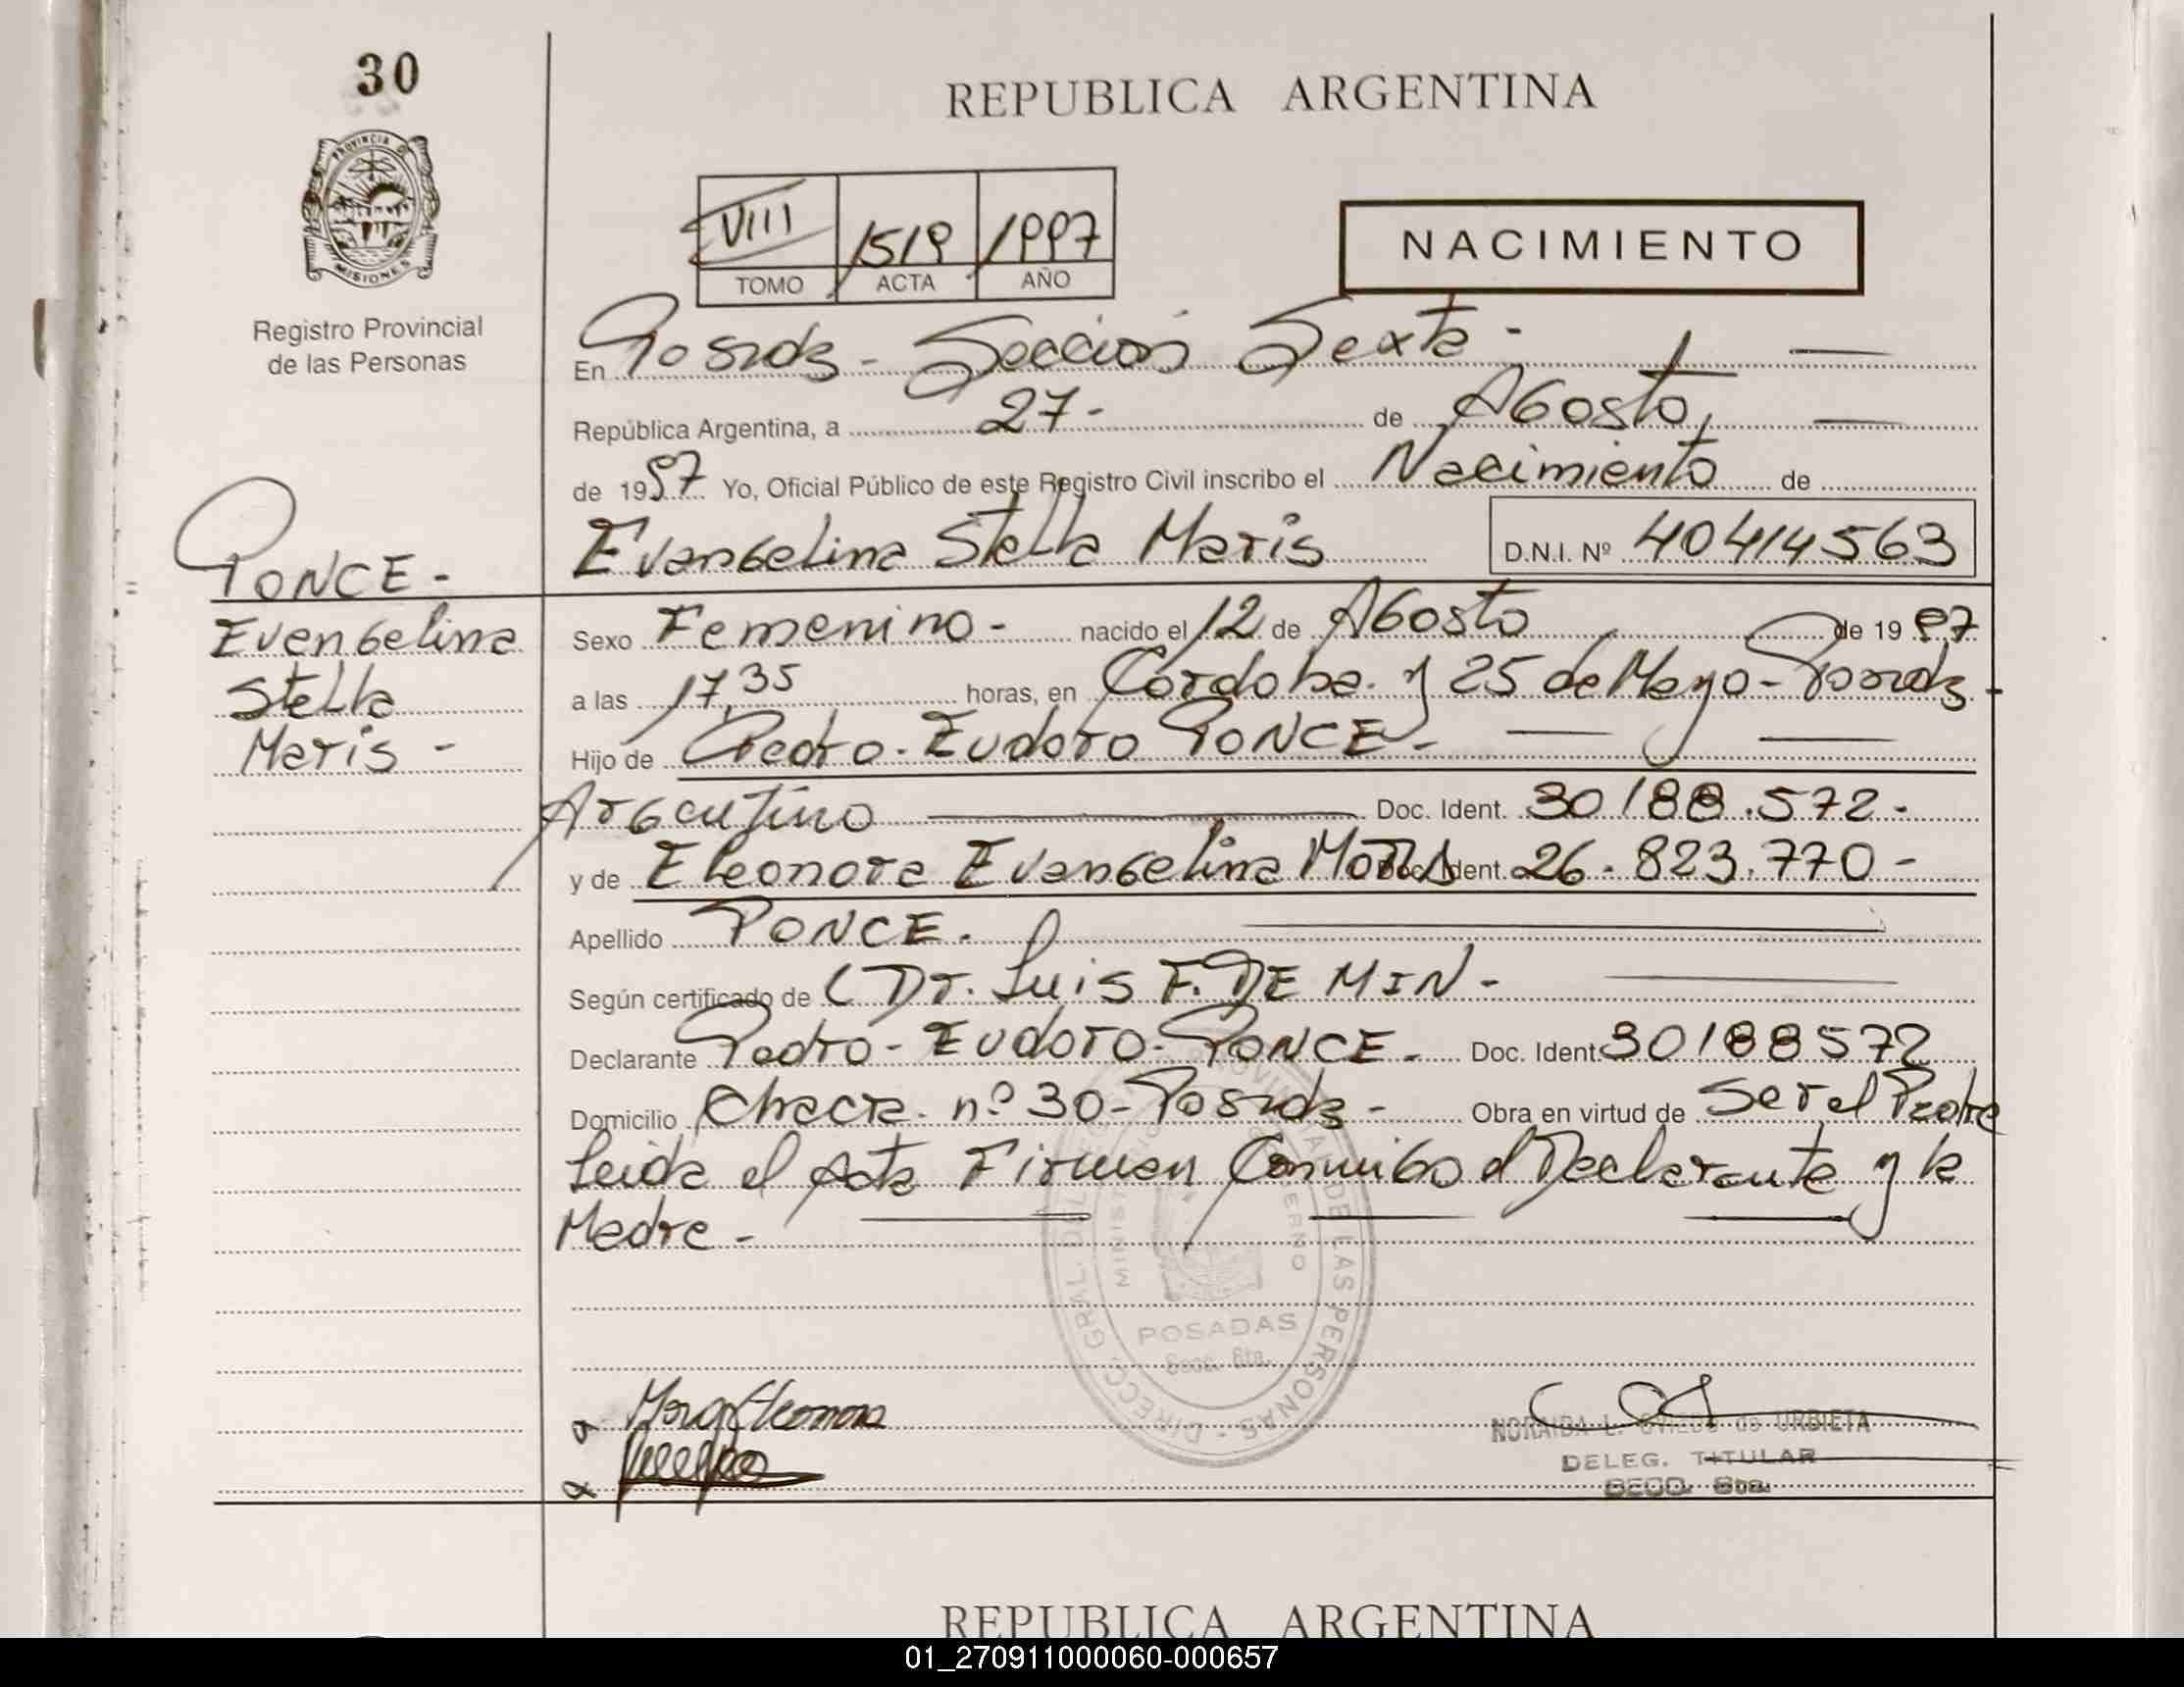 30
REPUBLICA ARGENTINA
PROVINCIA D
MISIONES
Registro Provincial
de las Personas
VIII 1519 1997
TOMO ACTA AÑO
NACIMIENTO
En Posadas - Sección Sexta -
República Argentina, a 27- de Agosto,
de 1997 Yo, Oficial Público de este Registro Civil inscribo el Nacimiento de
Evangelina Stella Maris D.N.I. Nº 40414563
PONCE -
Evangelina
Stella
Maris -
Sexo Femenino - nacido el 12 de Agosto de 1997
a las 17,35 horas, en Córdoba y 25 de Mayo - Posadas -
Hijo de Pedro - Eudoro PONCE -
Argentino Doc. Ident. 30188.572 -
y de Eleonora Evangelina Ident 26.823.770 -
Apellido PONCE.
Según certificado de (Dr. Luis F. DE MIN -
Declarante Pedro - Eudoro - PONCE - Doc. Ident. 30188572
Domicilio Chacra nº 30 - Posadas - Obra en virtud de ser el Padre
Leida el Acta Firman Conmigo el Declarante y la
Madre -
DIRECC. GRAL. DEL REG. PROVINCIAL DE LAS PERSONAS
POSADAS
Secc. 6ta.
Eleonora
NORAIDA L. OVIEDO de URBIETA
DELEG. TITULAR
SECC. 6ta.
REPUBLICA ARGENTINA
01_270911000060-000657